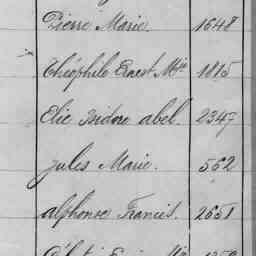 Pierre Marie. 1648
Théophile Ernest Mie 1815
Elie Isidore abel. 2347
Jules Marie. 562
alphonse Francis. 2651